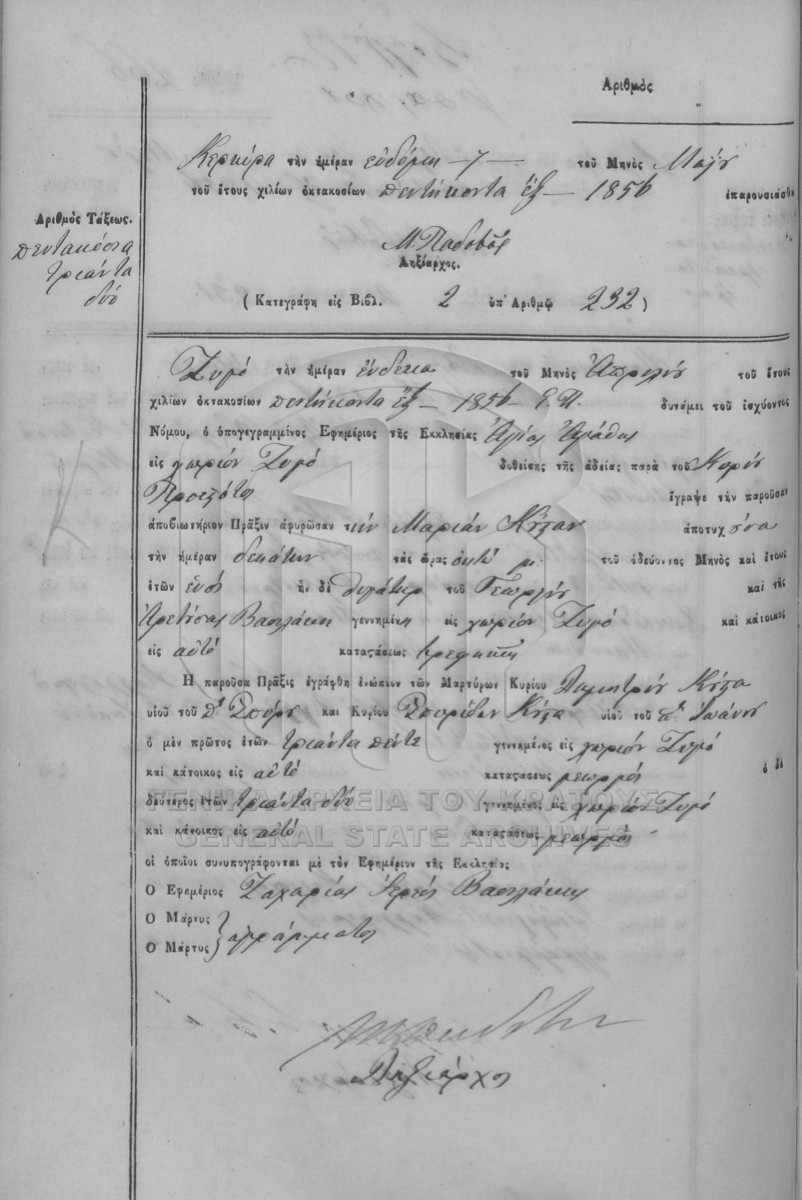 Αριθμὸς
Κερκύρα τὴν ἡμέραν εὐδόμη — 7 — τοῦ Μηνὸς Μαΐου
τοῦ ἔτους χιλίων ὀκτακοσίων πεντήκοντα ἕξ — 1856 ἐπαρουσιάσθη
Ἀριθμὸς Τάξεως.
πεντακόσια
τριάντα
δύο
Μ. Παδοβᾶς
Ληξίαρχος.
( Κατεγράφη εἰς Βιβλ. 2 ὑπ' Ἀριθμῷ 232 )
Ζυγό τὴν ἡμέραν ἕνδεκα τοῦ Μηνὸς Ἀπριλίου τοῦ ἔτους
χιλίων ὀκτακοσίων πεντήκοντα ἕξ — 1856 Ε. Π. δυνάμει τοῦ ἰσχύοντος
Νόμου, ὁ ὑπογεγραμμένος Ἐφημέριος τῆς Ἐκκλησίας Ἁγίας
εἰς χωρίον Ζυγό δοθείσης τῆς ἀδείας παρὰ τοῦ Κυρίου
Προεστότος ἔγραψε τὴν παροῦσαν
ἀποβιωτήριον Πρᾶξιν ἀφορῶσαν τὴν Μαριάν ἀποτυχοῦσα
τὴν ἡμέραν δεκάτην τὰς ὥρας ὀκτώ μ. τοῦ ὁδεύοντος Μηνὸς καὶ ἔτους
ἐτῶν ἑνός ἦν δὲ θυγάτηρ τοῦ Γεωργίου καὶ τῆς
Ἀρετούσας Βασιλάκη γεννημένη εἰς χωρίον Ζυγό καὶ κάτοικος
εἰς αὐτό καταςάσεως
Ἡ παροῦσα Πρᾶξις ἐγράφθη ἐνώπιον τῶν Μαρτύρων Κυρίου Δημητρίου
υἱοῦ τοῦ πτ Σπύρου και Κυρίου Σπυρίδων υἱοῦ τοῦ πτ Ἰωάννου
ὁ μὲν πρῶτος ἐτῶν τριάντα πέντε γεννημένος εἰς χωρίον Ζυγό
καὶ κάτοικος εἰς αὐτό καταςάσεως γεωργός ὁ δὲ
δεύτερος ἐτῶν τριάντα δύο γεννημένος εἰς χωρίον Ζυγό
καὶ κάτοικος εἰς αὐτό καταςάσεως γεωργός
οἱ ὁποῖοι συνυπογράφονται μὲ τὸν Ἐφημέριον τῆς Ἐκκλησίας
Ὁ Ἐφημέριος Ζαχαρίας Ἱερεύς Βασιλάκης
Ὁ Μάρτυς
Ὁ Μάρτυς } ἀγράμματοι
Ληξίαρχος
ΓΕΝΙΚΑ ΑΡΧΕΙΑ ΤΟΥ ΚΡΑΤΟΥΣ
GENERAL STATE ARCHIVES